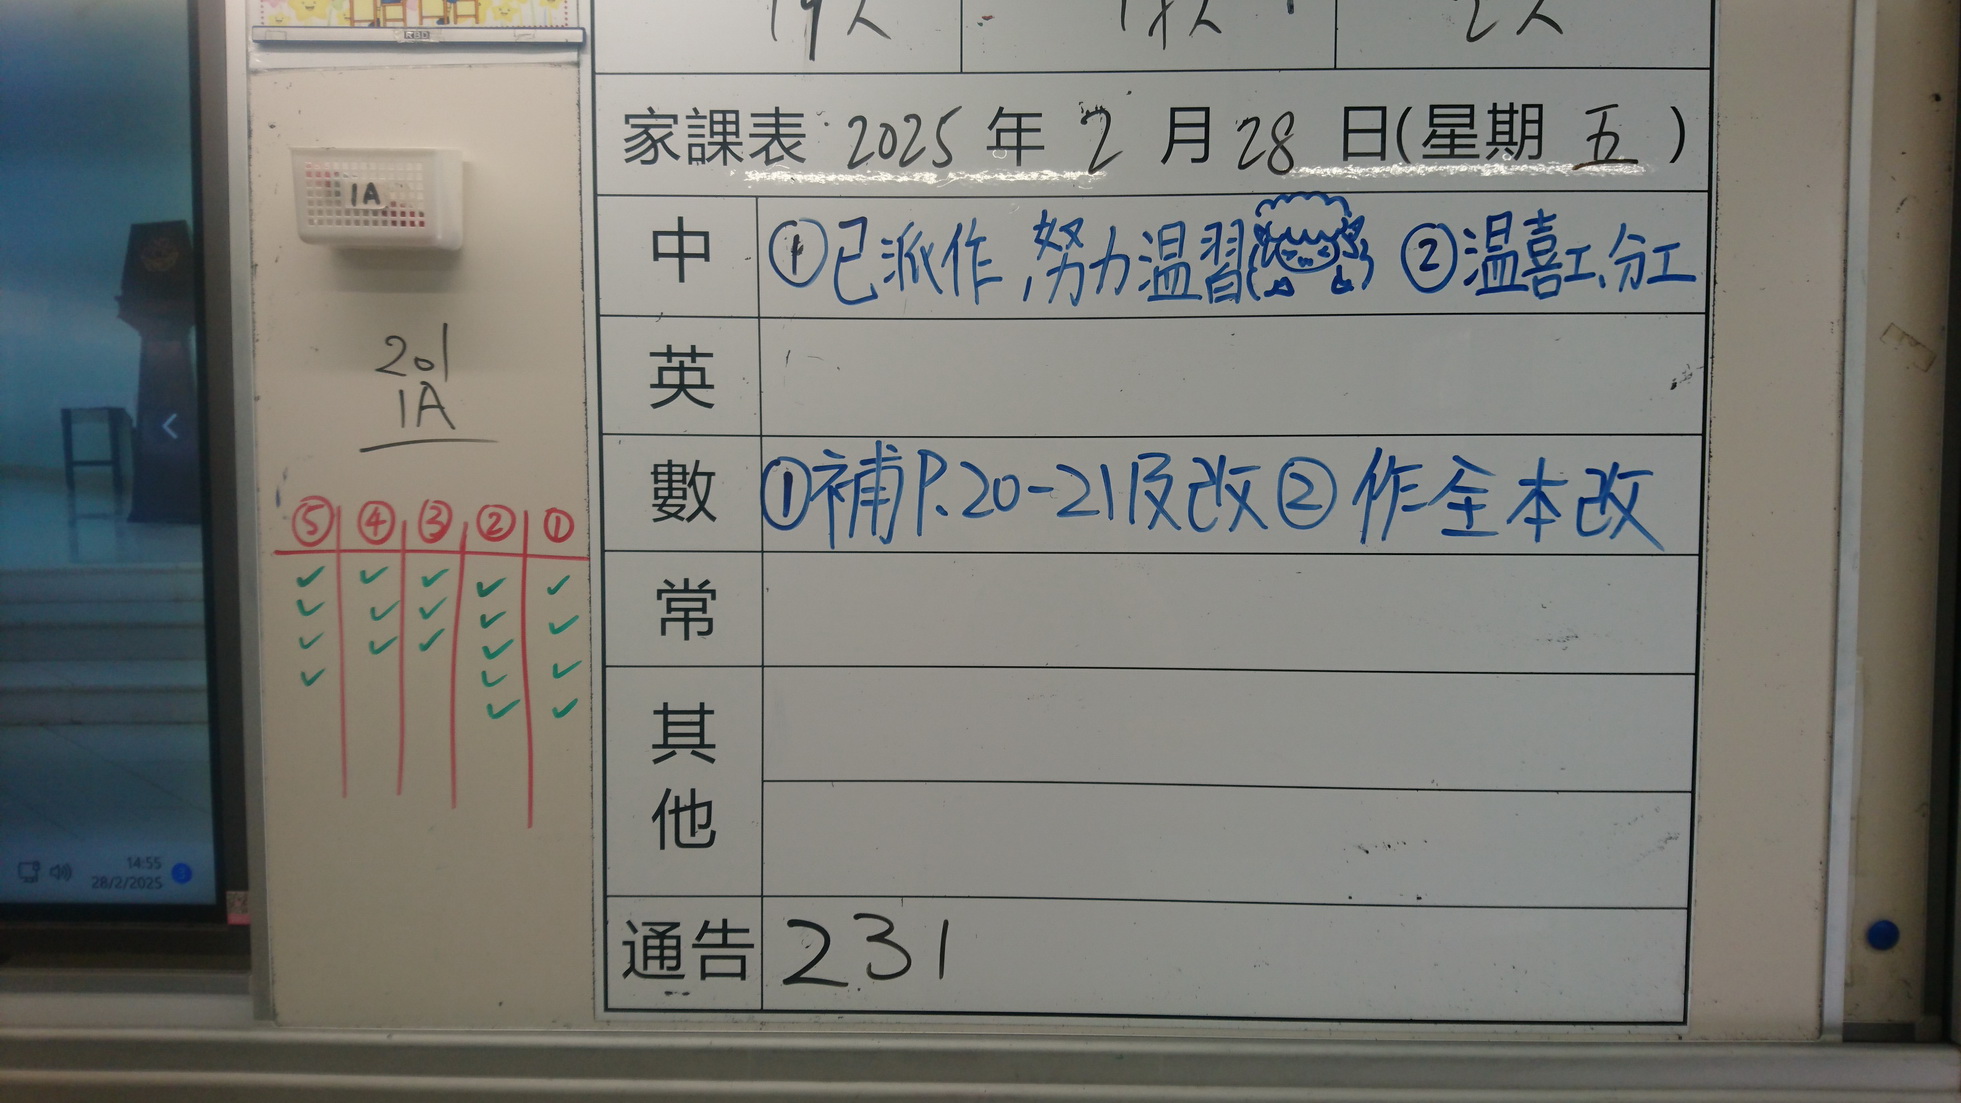 19人 17人 2人
RBD
家課表 2025 年 2 月 28 日(星期 五 )
中 ①已派作,努力温習 ②温喜工、分工
英
數 ①補P.20-21及改 ② 作全本改
常
其他
通告 231
1A
201
1A
⑤ ④ ③ ② ①
14:55
28/2/2025